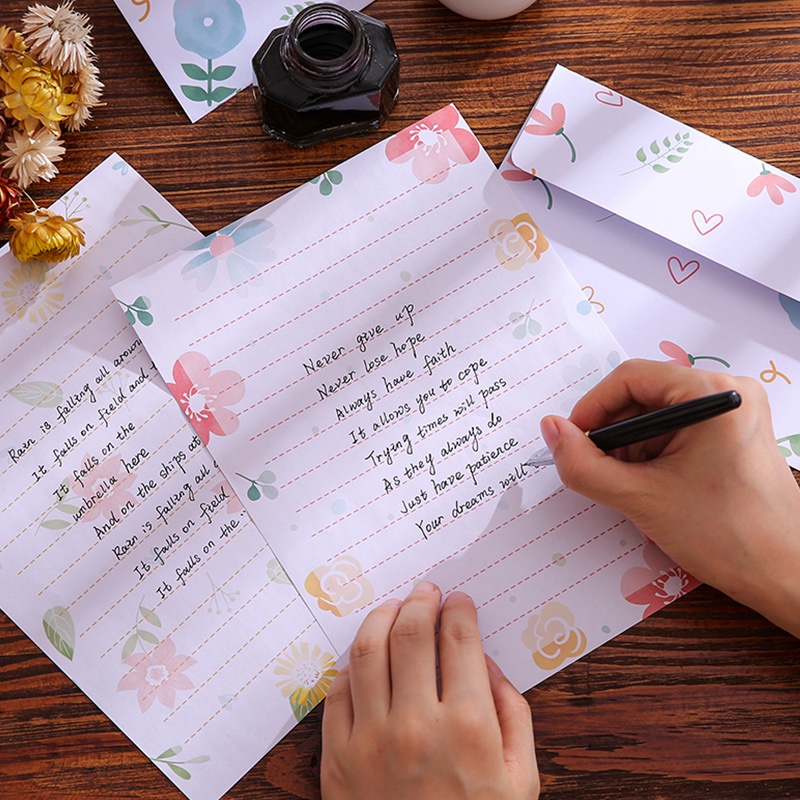 Rain is falling all around
It falls on field and
It falls on the
umbrella here
And on the ships at
Rain is falling all
It falls on field
It falls on the
Never give up
Never lose hope
Always have faith
It allows you to cope
Trying times will pass
As they always do
Just have patience
Your dreams will